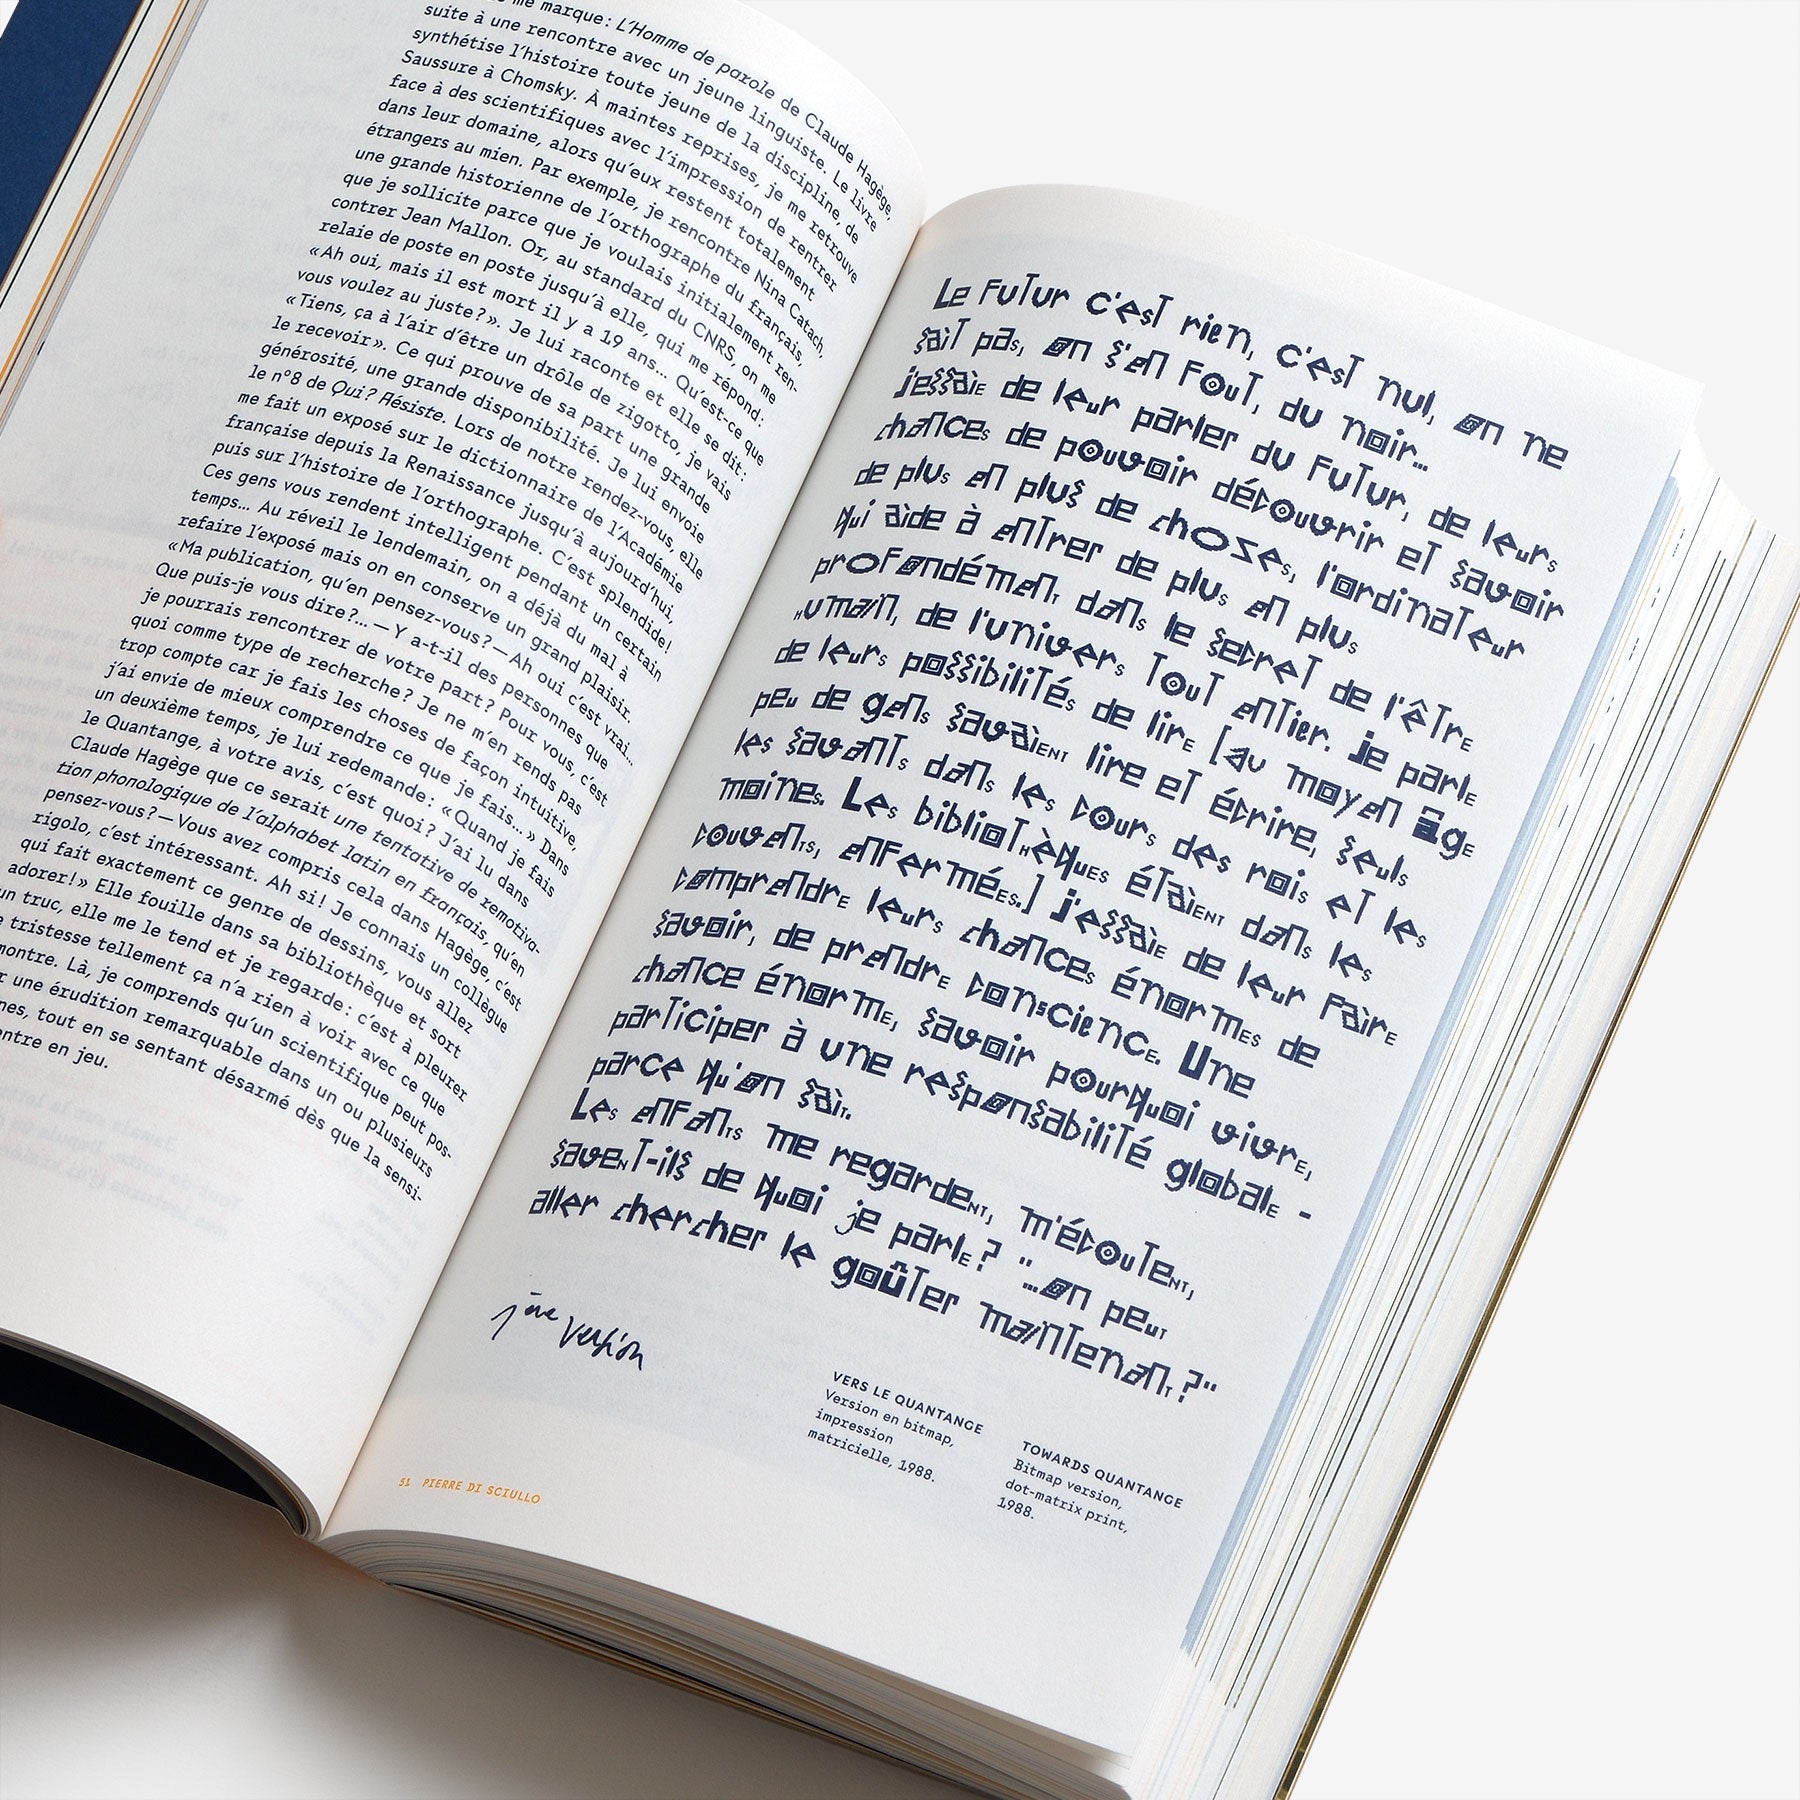 me marque : L'Homme de parole de Claude Hagège,
suite à une rencontre avec un jeune linguiste. Le livre
synthétise l'histoire toute jeune de la discipline, de
Saussure à Chomsky. À maintes reprises, je me retrouve
face à des scientifiques avec l'impression de rentrer
dans leur domaine, alors qu'eux restent totalement
étrangers au mien. Par exemple, je rencontre Nina Catach,
une grande historienne de l'orthographe du français,
que je sollicite parce que je voulais initialement ren-
contrer Jean Mallon. Or, au standard du CNRS, on me
relaie de poste en poste jusqu'à elle, qui me répond :
« Ah oui, mais il est mort il y a 19 ans... Qu'est-ce que
vous voulez au juste ? ». Je lui raconte et elle se dit :
« Tiens, ça à l'air d'être un drôle de zigotto, je vais
le recevoir ». Ce qui prouve de sa part une grande
générosité, une grande disponibilité. Je lui envoie
le n°8 de Qui ? Résiste. Lors de notre rendez-vous, elle
me fait un exposé sur le dictionnaire de l'Académie
française depuis la Renaissance jusqu'à aujourd'hui,
puis sur l'histoire de l'orthographe. C'est splendide !
Ces gens vous rendent intelligent pendant un certain
temps... Au réveil le lendemain, on a déjà du mal à
refaire l'exposé mais on en conserve un grand plaisir.
« Ma publication, qu'en pensez-vous ? — Ah oui c'est vrai...
Que puis-je vous dire ?... — Y a-t-il des personnes que
je pourrais rencontrer de votre part ? Pour vous, c'est
quoi comme type de recherche ? Je ne m'en rends pas
trop compte car je fais les choses de façon intuitive,
j'ai envie de mieux comprendre ce que je fais... » Dans
un deuxième temps, je lui redemande : « Quand je fais
le Quantange, à votre avis, c'est quoi ? J'ai lu dans
Claude Hagège que ce serait une tentative de remotiva-
tion phonologique de l'alphabet latin en français, qu'en
pensez-vous ? — Vous avez compris cela dans Hagège, c'est
rigolo, c'est intéressant. Ah si ! Je connais un collègue
qui fait exactement ce genre de dessins, vous allez
adorer ! » Elle fouille dans sa bibliothèque et sort
un truc, elle me le tend et je regarde : c'est à pleurer
tristesse tellement ça n'a rien à voir avec ce que
montre. Là, je comprends qu'un scientifique peut pos-
une érudition remarquable dans un ou plusieurs
tout en se sentant désarmé dès que la sensi-
entre en jeu.
Le futur c'est rien, c'est nul, on ne
sait pas, on s'en fout, du noir...
j'essaie de leur parler du futur, de leurs
chances de pouvoir découvrir et savoir
de plus en plus de choses, l'ordinateur
qui aide à entrer de plus en plus
profondément dans le secret de l'être
humain, de l'univers tout entier. je parle
de leurs possibilités de lire [au moyen âge
peu de gens savaient lire et écrire, seuls
les savants dans les cours des rois et les
moines. Les bibliothèques étaient dans les
couvents, enfermées.] j'essaie de leur faire
comprendre leurs chances énormes de
savoir, de prendre conscience. Une
chance énorme, savoir pourquoi vivre,
participer à une responsabilité globale -
parce qu'on sait.
Les enfants me regardent, m'écoutent,
savent-ils de quoi je parle ? "...on peut
aller chercher le goûter maintenant ?"
version
VERS LE QUANTANGE
Version en bitmap,
impression
matricielle, 1988.
TOWARDS QUANTANGE
Bitmap version,
dot-matrix print,
1988.
51 PIERRE DI SCIULLO